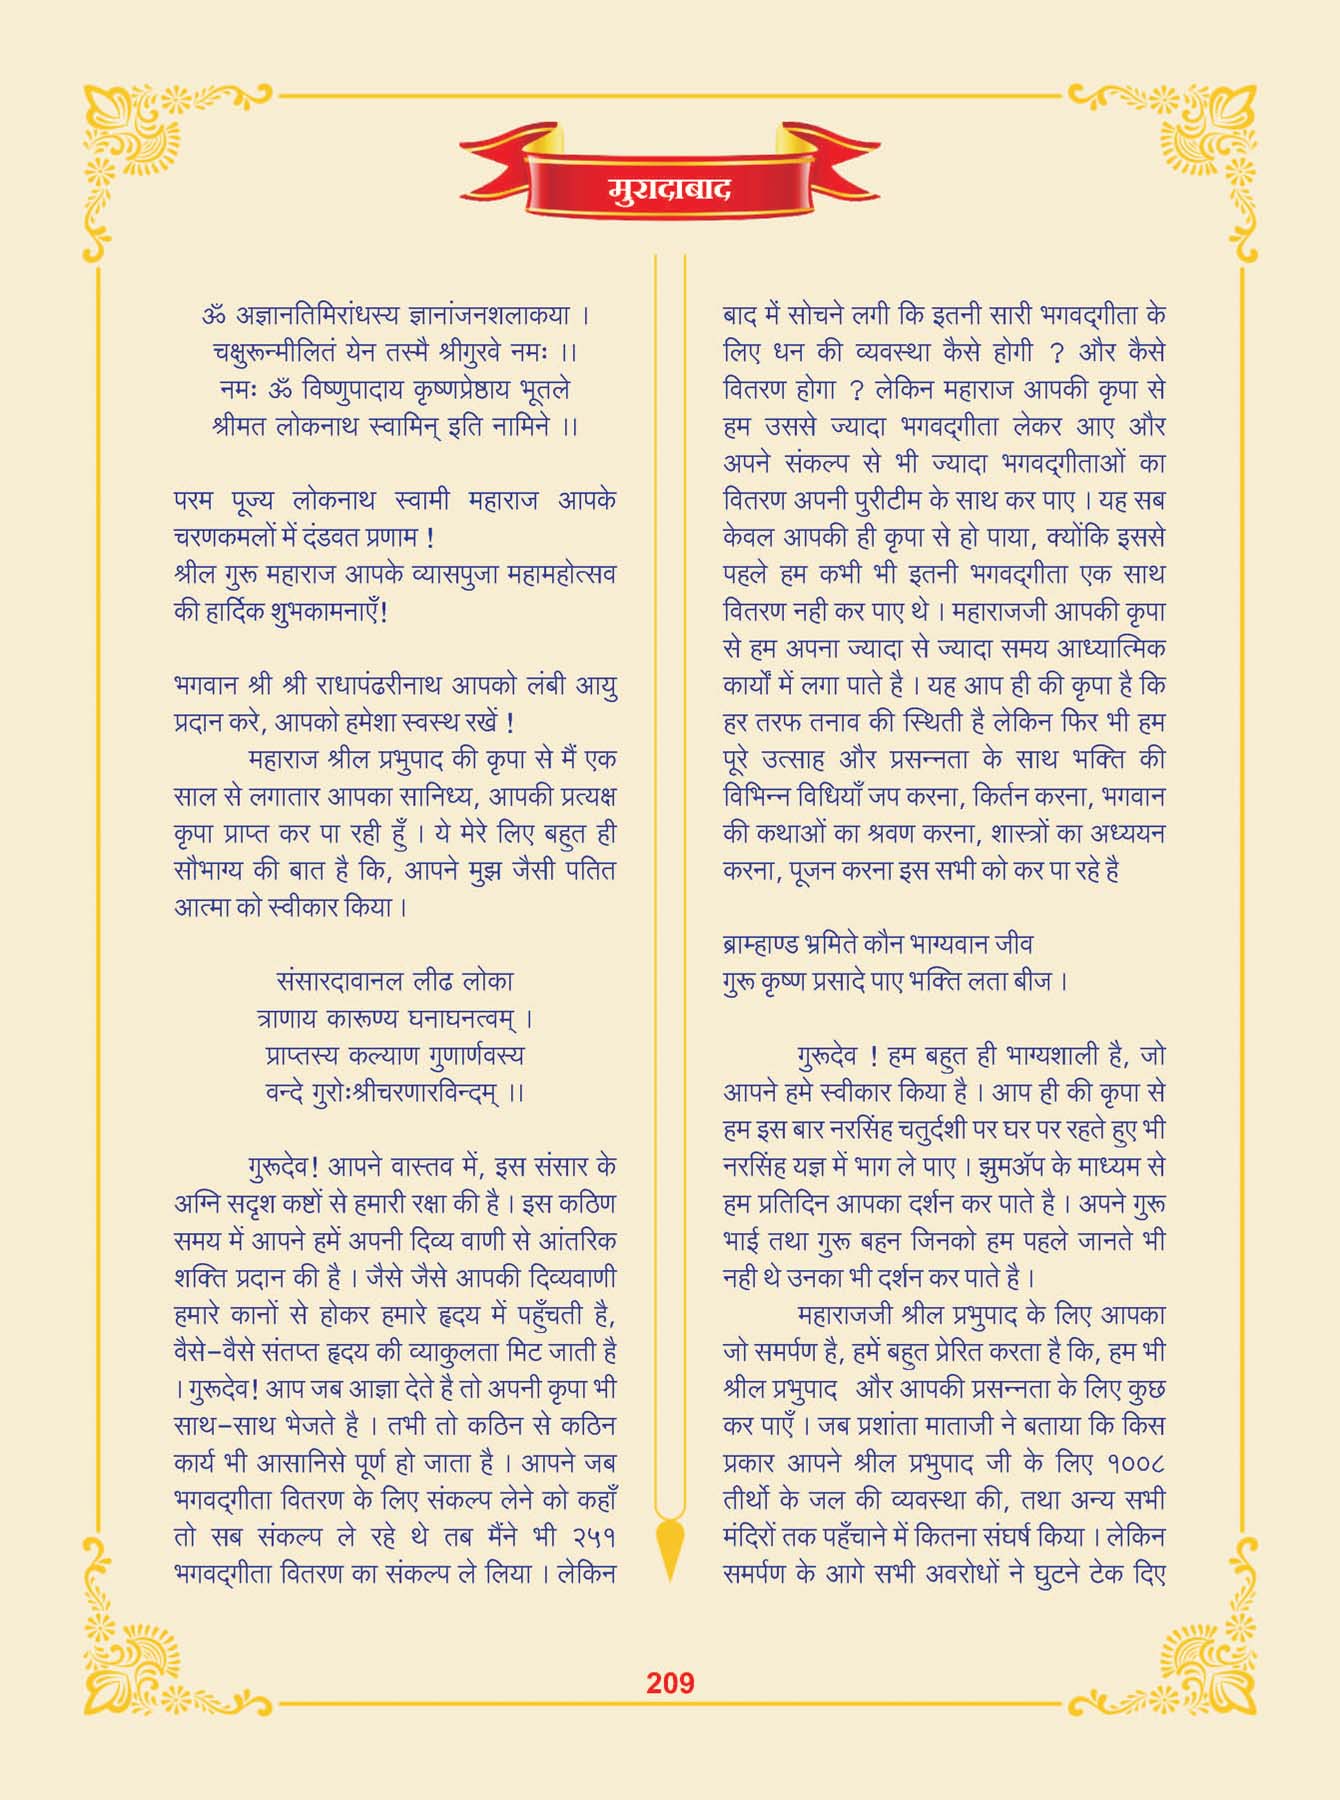 मुरादाबाद
ॐ अज्ञानतिमिरांधस्य ज्ञानांजनशलाकया ।
चक्षुरून्मीलितं येन तस्मै श्रीगुरवे नमः ।।
नमः ॐ विष्णुपादाय कृष्णप्रेष्ठाय भूतले
श्रीमत लोकनाथ स्वामिन् इति नामिने ।।
परम पूज्य लोकनाथ स्वामी महाराज आपके
चरणकमलों में दंडवत प्रणाम !
श्रील गुरू महाराज आपके व्यासपुजा महामहोत्सव
की हार्दिक शुभकामनाएँ!
भगवान श्री श्री राधापंढरीनाथ आपको लंबी आयु
प्रदान करे, आपको हमेशा स्वस्थ रखें !
महाराज श्रील प्रभुपाद की कृपा से मैं एक
साल से लगातार आपका सानिध्य, आपकी प्रत्यक्ष
कृपा प्राप्त कर पा रही हुँ । ये मेरे लिए बहुत ही
सौभाग्य की बात है कि, आपने मुझ जैसी पतित
आत्मा को स्वीकार किया ।
संसारदावानल लीढ लोका
त्राणाय कारूण्य घनाघनत्वम् ।
प्राप्तस्य कल्याण गुणार्णवस्य
वन्दे गुरोःश्रीचरणारविन्दम् ।।
गुरूदेव! आपने वास्तव में, इस संसार के
अग्नि सदृश कष्टों से हमारी रक्षा की है । इस कठिण
समय में आपने हमें अपनी दिव्य वाणी से आंतरिक
शक्ति प्रदान की है । जैसे जैसे आपकी दिव्यवाणी
हमारे कानों से होकर हमारे हृदय में पहुँचती है,
वैसे-वैसे संतप्त हृदय की व्याकुलता मिट जाती है
। गुरूदेव! आप जब आज्ञा देते है तो अपनी कृपा भी
साथ-साथ भेजते है । तभी तो कठिन से कठिन
कार्य भी आसानिसे पूर्ण हो जाता है । आपने जब
भगवद्‌गीता वितरण के लिए संकल्प लेने को कहाँ
तो सब संकल्प ले रहे थे तब मैंने भी २५१
भगवद्‌गीता वितरण का संकल्प ले लिया । लेकिन
बाद में सोचने लगी कि इतनी सारी भगवद्‌गीता के
लिए धन की व्यवस्था कैसे होगी ? और कैसे
वितरण होगा ? लेकिन महाराज आपकी कृपा से
हम उससे ज्यादा भगवद्‌गीता लेकर आए और
अपने संकल्प से भी ज्यादा भगवद्‌गीताओं का
वितरण अपनी पुरीटीम के साथ कर पाए । यह सब
केवल आपकी ही कृपा से हो पाया, क्योंकि इससे
पहले हम कभी भी इतनी भगवद्‌गीता एक साथ
वितरण नही कर पाए थे । महाराजजी आपकी कृपा
से हम अपना ज्यादा से ज्यादा समय आध्यात्मिक
कार्यों में लगा पाते है । यह आप ही की कृपा है कि
हर तरफ तनाव की स्थिती है लेकिन फिर भी हम
पूरे उत्साह और प्रसन्नता के साथ भक्ति की
विभिन्न विधियाँ जप करना, किर्तन करना, भगवान
की कथाओं का श्रवण करना, शास्त्रों का अध्ययन
करना, पूजन करना इस सभी को कर पा रहे है
ब्राम्हाण्ड भ्रमिते कौन भाग्यवान जीव
गुरू कृष्ण प्रसादे पाए भक्ति लता बीज ।
गुरूदेव ! हम बहुत ही भाग्यशाली है, जो
आपने हमे स्वीकार किया है । आप ही की कृपा से
हम इस बार नरसिंह चतुर्दशी पर घर पर रहते हुए भी
नरसिंह यज्ञ में भाग ले पाए । झुमॲप के माध्यम से
हम प्रतिदिन आपका दर्शन कर पाते है । अपने गुरू
भाई तथा गुरू बहन जिनको हम पहले जानते भी
नही थे उनका भी दर्शन कर पाते है ।
महाराजजी श्रील प्रभुपाद के लिए आपका
जो समर्पण है, हमें बहुत प्रेरित करता है कि, हम भी
श्रील प्रभुपाद और आपकी प्रसन्नता के लिए कुछ
कर पाएँ । जब प्रशांता माताजी ने बताया कि किस
प्रकार आपने श्रील प्रभुपाद जी के लिए १००८
तीर्थो के जल की व्यवस्था की, तथा अन्य सभी
मंदिरों तक पहुँचाने में कितना संघर्ष किया । लेकिन
समर्पण के आगे सभी अवरोधों ने घुटने टेक दिए
209